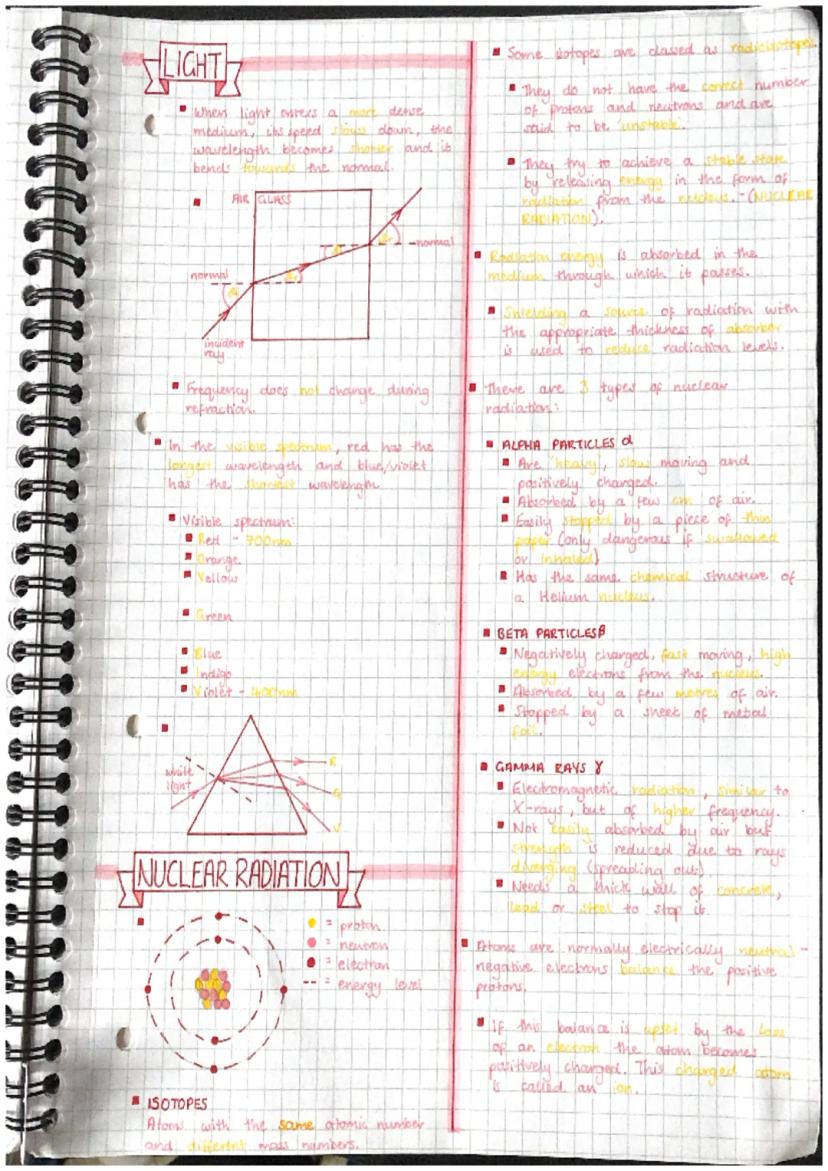 LIGHT
When light enters a more dense
medium, its speed slows down, the
wavelength becomes shorter and it
bends towards the normal.
AIR GLASS
normal
normal
incident
ray
Frequency does not change during
refraction.
In the visible spectrum, red has the
longest wavelength and blue/violet
has the shortest wavelength
Visible spectrum:
Red - 700nm
Orange
Yellow
Green
Blue
Indigo
Violet - 400nm
white
light
R
G
V
NUCLEAR RADIATION
= proton
= neutron
= electron
= energy level
ISOTOPES
Atoms with the same atomic number
and different mass numbers.
Some isotopes are classed as radioisotopes
They do not have the correct number
of protons and neutrons and are
said to be 'unstable'.
They try to achieve a stable state
by releasing energy in the form of
radiation from the nucleus. - (NUCLEAR
RADIATION).
Radiation energy is absorbed in the
medium through which it passes.
Shielding a source of radiation with
the appropriate thickness of absorber
is used to reduce radiation levels.
There are 3 types of nuclear
radiation:
ALPHA PARTICLES α
Are 'heavy', slow moving and
positively charged.
Absorbed by a few cm of air.
Easily stopped by a piece of thin
paper (only dangerous if swallowed
or inhaled)
Has the same chemical structure of
a Helium nucleus.
BETA PARTICLES β
Negatively charged, fast moving, high
energy electrons from the nucleus.
Absorbed by a few metres of air.
Stopped by a sheet of metal
foil.
GAMMA RAYS γ
Electromagnetic radiation, similar to
X-rays, but of higher frequency.
Not easily absorbed by air but
strength is reduced due to rays
diverging (spreading out)
Needs a thick wall of concrete,
lead or steel to stop it.
Atoms are normally electrically neutral -
negative electrons balance the positive
protons.
If this balance is upset by the loss
of an electron the atom becomes
positively charged. This charged atom
is called an ion.